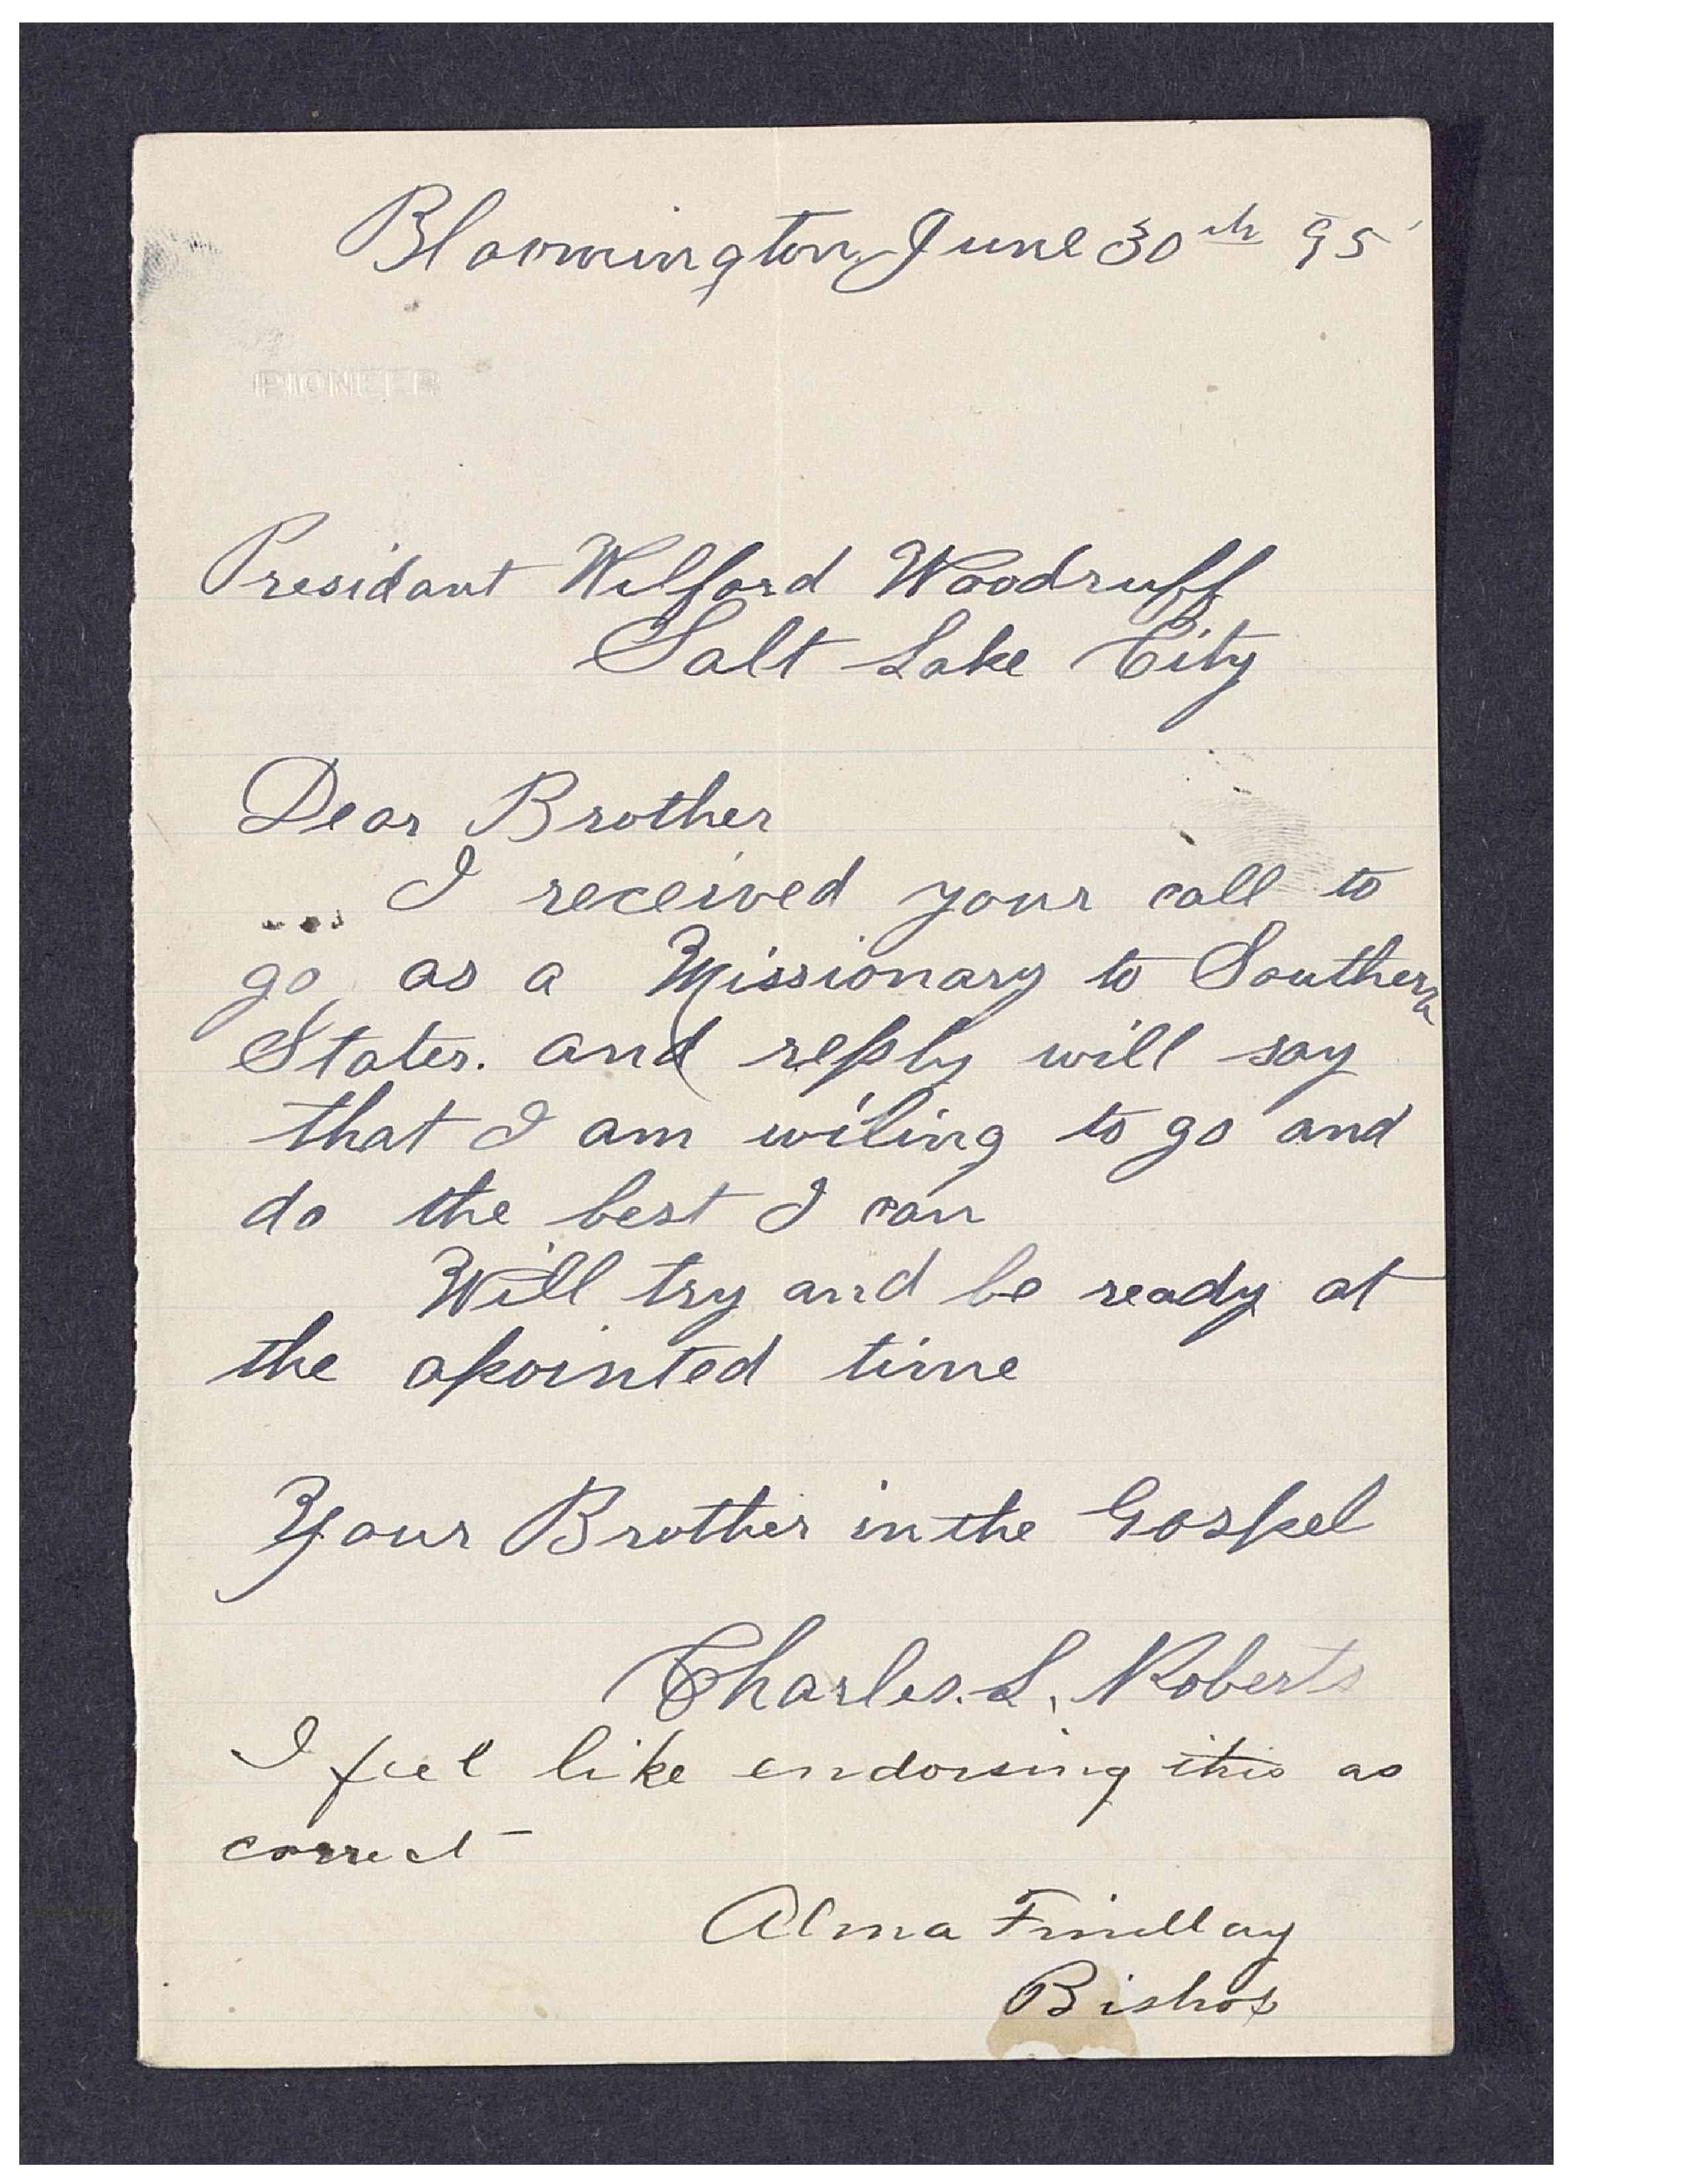 Bloomington June 30th 95
PIONEER
Presidant Wilford Woodruff
Salt Lake City
Dear Brother
I received your call to
go as a Missionary to Southern
States. and reply will say
that I am wiling to go and
do the best I can
Will try and be ready at
the apointed time
Your Brother in the Gospel
Charles. L. Roberts
I feel like endorsing this as
correct
Alma Findlay
Bishop